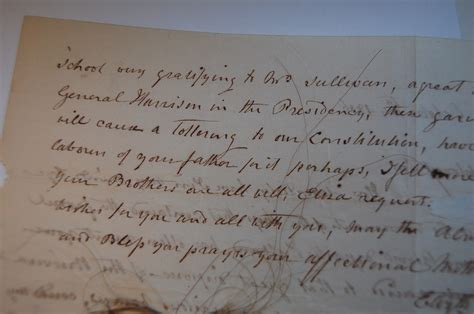 School very gratifying to Mrs Sullivan, a great
General Harrison in the Presidency, then
will cause a Tottering to our Constitution, have
labours of your father for it perhaps, I feel more
your Brothers are all well, Eliza request
wishes for you and all with you, may the
and Bless you prays your affectionate